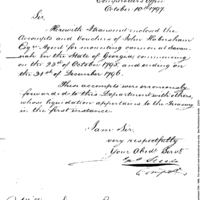 Comptrollers Office
October 10th 1797.
Sir,
Herewith I transmit inclosed the
Accounts and Vouchers of John Habersham
Esqr. Agent for
in the State of Georgia commencing
on the 23d of October 1795, and ending on
the 31st of December 1796.
These accounts were erroneously
forwarded to this Department with others,
whose liquidation appertains to the
in the first instance.
I am Sir,
very respectfully
Your Obedt. Servt.